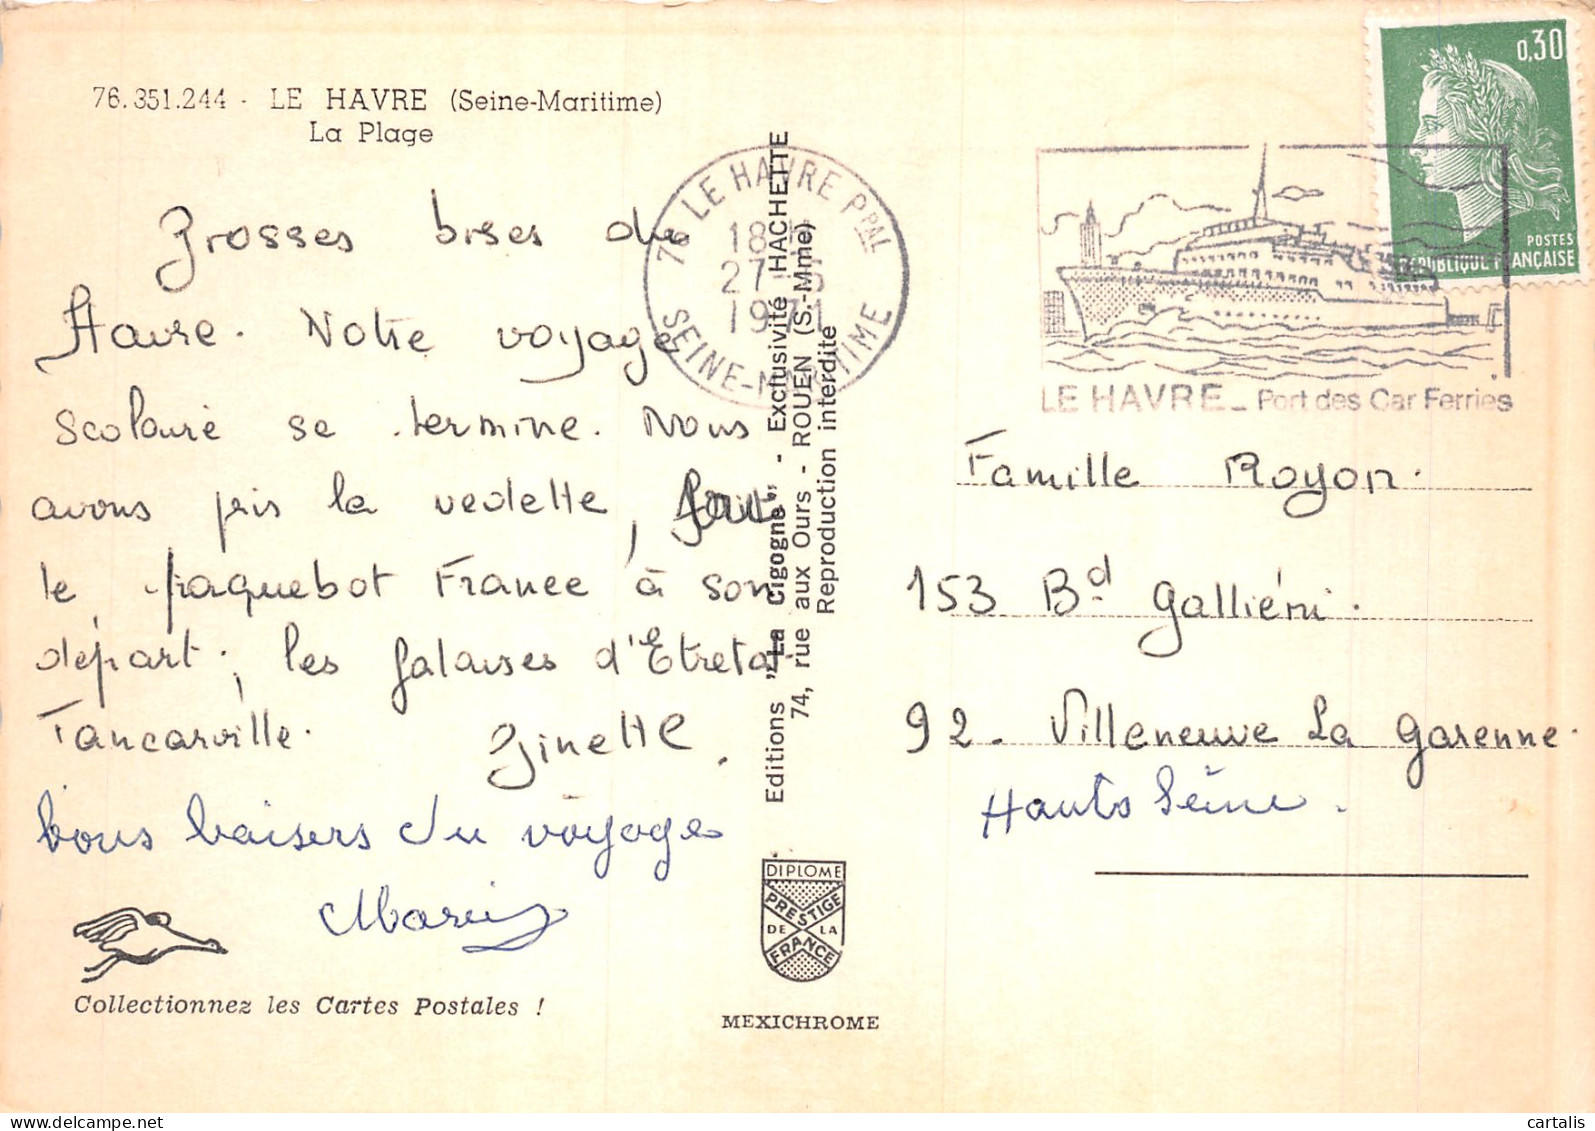 76.351.244 - LE HAVRE (Seine-Maritime)
La Plage
Grosses bises du
Havre. Notre voyage
scolaire se termine. Nous
avons pris la vedette,
le paquebot France à son
départ; les falaises d'Etretat
Tancarville. Ginette.
bons baisers du voyage
Collectionnez les Cartes Postales !
Editions "La Cigogne" - Exclusivité HACHETTE
74, rue aux Ours - ROUEN (S.-Mme)
Reproduction interdite
DIPLOME
PRESTIGE
DE LA
FRANCE
MEXICHROME
76 LE HAVRE PPAL
18 H
27 - 5
1971
SEINE-MARITIME
LE HAVRE - Port des Car Ferries
0,30
POSTES
RÉPUBLIQUE FRANÇAISE
Famille Royon.
153 Bd Galliéni.
92 - Villeneuve La Garenne.
Hauts Seine.
cartalis
www.delcampe.net